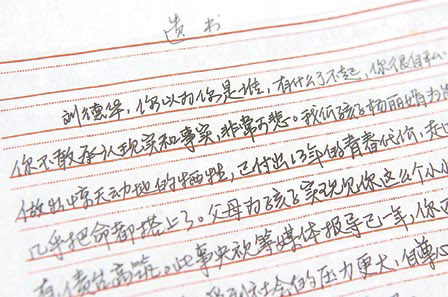 遗书
刘德华，你以为你是谁，有什么了不起，你很自私
你不敢承认现实和事实，非常可悲。我们孩子杨丽娟为
做出惊天动地的牺牲，已付出13年的青春代价，走
几乎把命都搭上了。父母为孩子实现见你这么个小小
有，债台高筑。此事央视等媒体报导已一年，你
的压力更大，自尊心